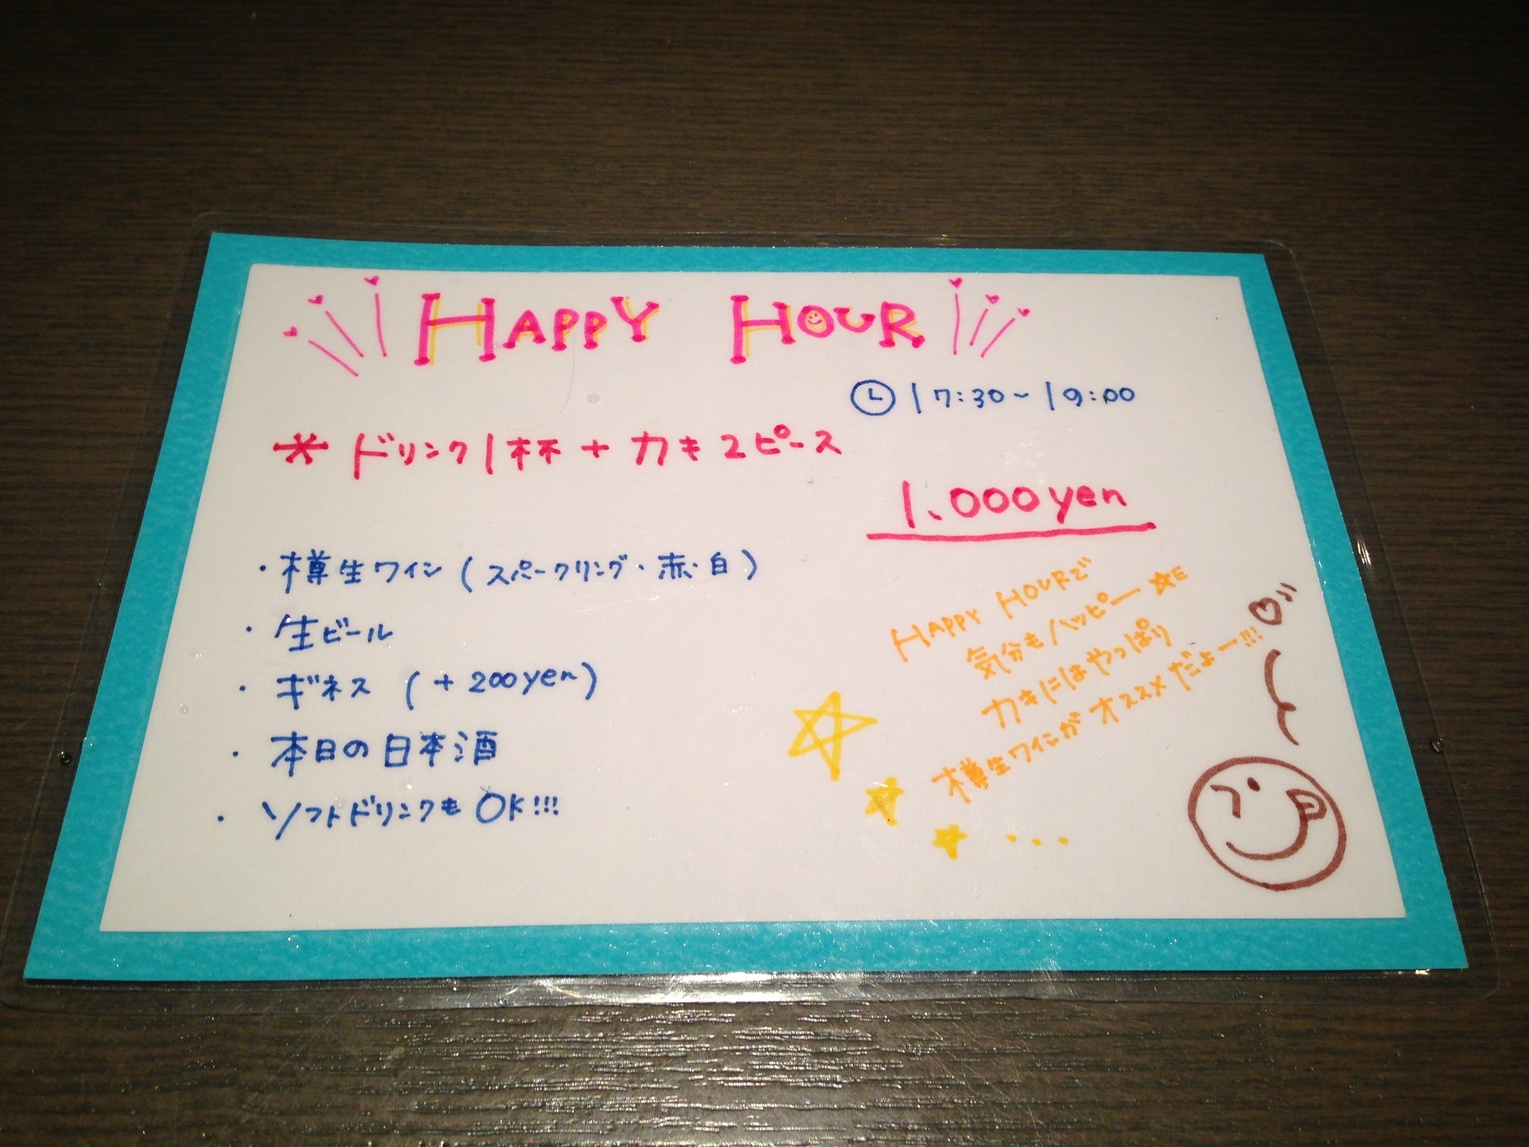 HAPPY HOUR
17:30~19:00
* ドリンク1杯 + カキ2ピース
1.000yen
・樽生ワイン (スパークリング・赤・白)
・生ビール
・ギネス (+200yen)
・本日の日本酒
・ソフトドリンクも OK!!!
HAPPY HOURで
気分もハッピー☆
カキにはやっぱり
樽生ワインが オススメだよー!!!